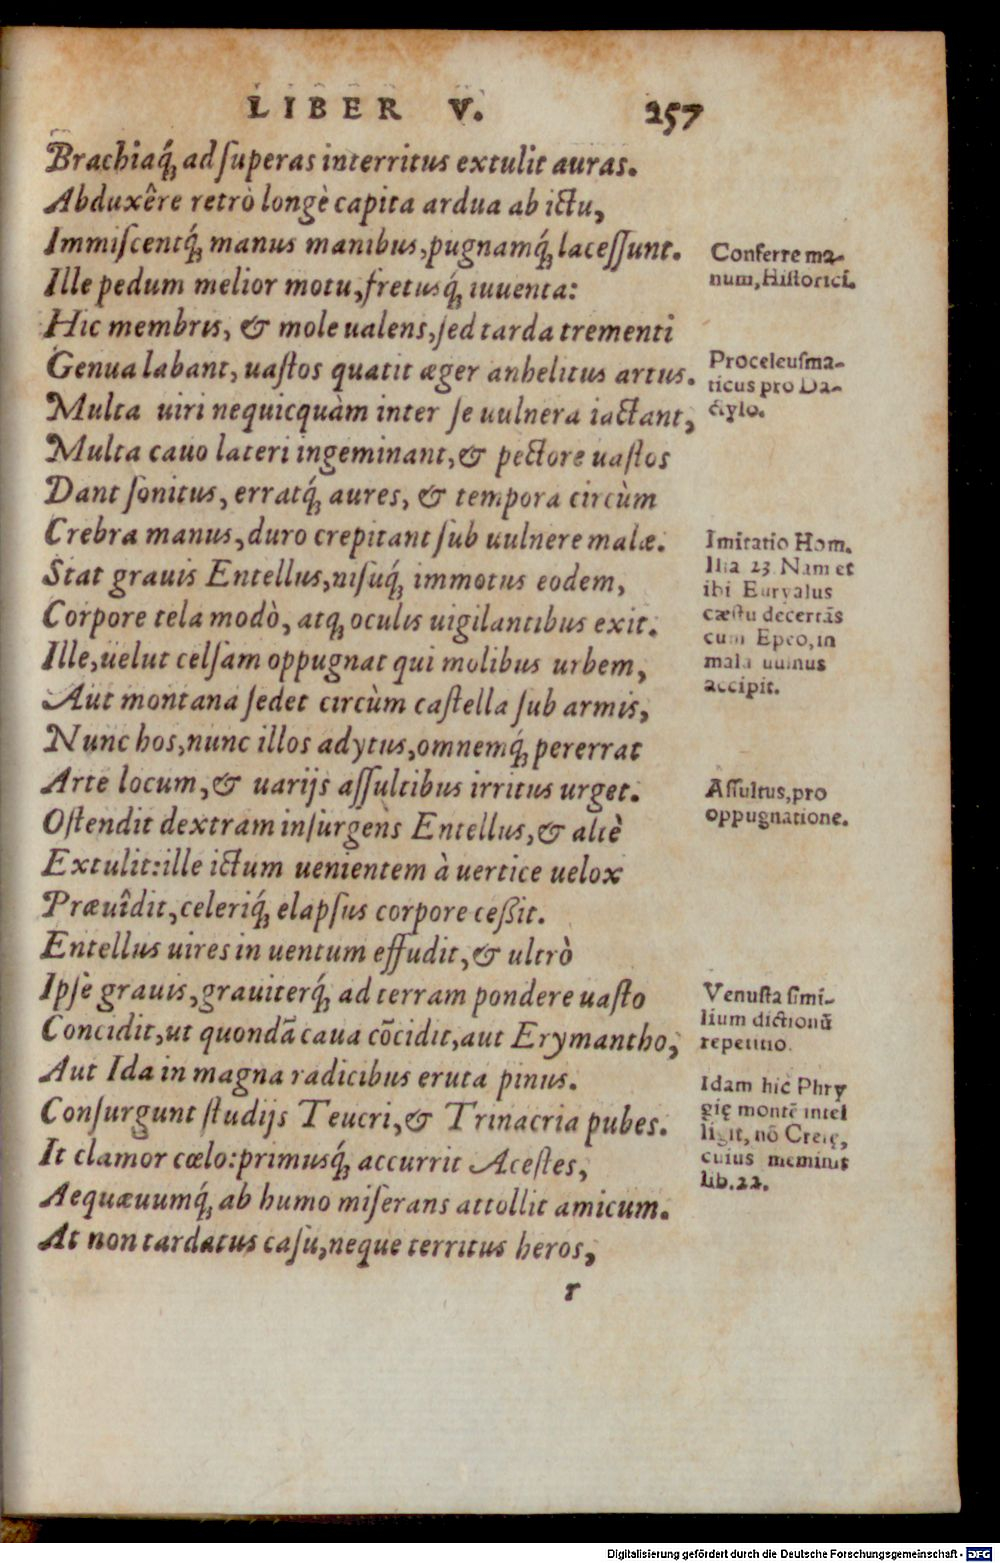 LIBER V. 257
Brachiaq́; ad ſuperas interritus extulit auras.
Abduxêre retrò longè capita ardua ab ictu,
Immiſcentq́; manus manibus, pugnamq́; laceſſunt.
Ille pedum melior motu, fretusq́; iuuenta:
Hic membris, & mole ualens, ſed tarda trementi
Genua labant, uaſtos quatit æger anhelitus artus.
Multa uiri nequicquàm inter ſe uulnera iactant,
Multa cauo lateri ingeminant, & pectore uaſtos
Dant ſonitus, erratq́; aures, & tempora circùm
Crebra manus, duro crepitant ſub uulnere malæ.
Stat grauis Entellus, niſuq́; immotus eodem,
Corpore tela modò, atq; oculis uigilantibus exit.
Ille, uelut celſam oppugnat qui molibus urbem,
Aut montana ſedet circùm caſtella ſub armis,
Nunc hos, nunc illos adytus, omnemq́; pererrat
Arte locum, & uarijs aſſultibus irritus urget.
Oſtendit dextram inſurgens Entellus, & altè
Extulit: ille ictum uenientem à uertice uelox
Præuîdit, celeriq́; elapſus corpore ceßit.
Entellus uires in uentum effudit, & ultrò
Ipſe grauis, grauiterq́; ad terram pondere uaſto
Concidit, ut quondã caua cõcidit, aut Erymantho,
Aut Ida in magna radicibus eruta pinus.
Conſurgunt ſtudijs Teucri, & Trinacria pubes.
It clamor cœlo: primusq́; accurrit Aceſtes,
Aequæuumq́; ab humo miſerans attollit amicum.
At non tardatus caſu, neque territus heros,
r
Conferre ma-
num, Hiſtorici.
Proceleuſma-
ticus pro Da-
ctylo.
Imitatio Hom.
Ilia 23 Nam et
ibi Euryalus
cæſtu decertãs
cum Epeo, in
mala uulnus
accipit.
Aſſultus, pro
oppugnatione.
Venuſta ſimi-
lium dictionũ
repetitio.
Idam hic Phry
gię montẽ intel
ligit, nõ Cretę,
cuius meminit
lib. 12.
Digitalisierung gefördert durch die Deutsche Forschungsgemeinschaft - DFG